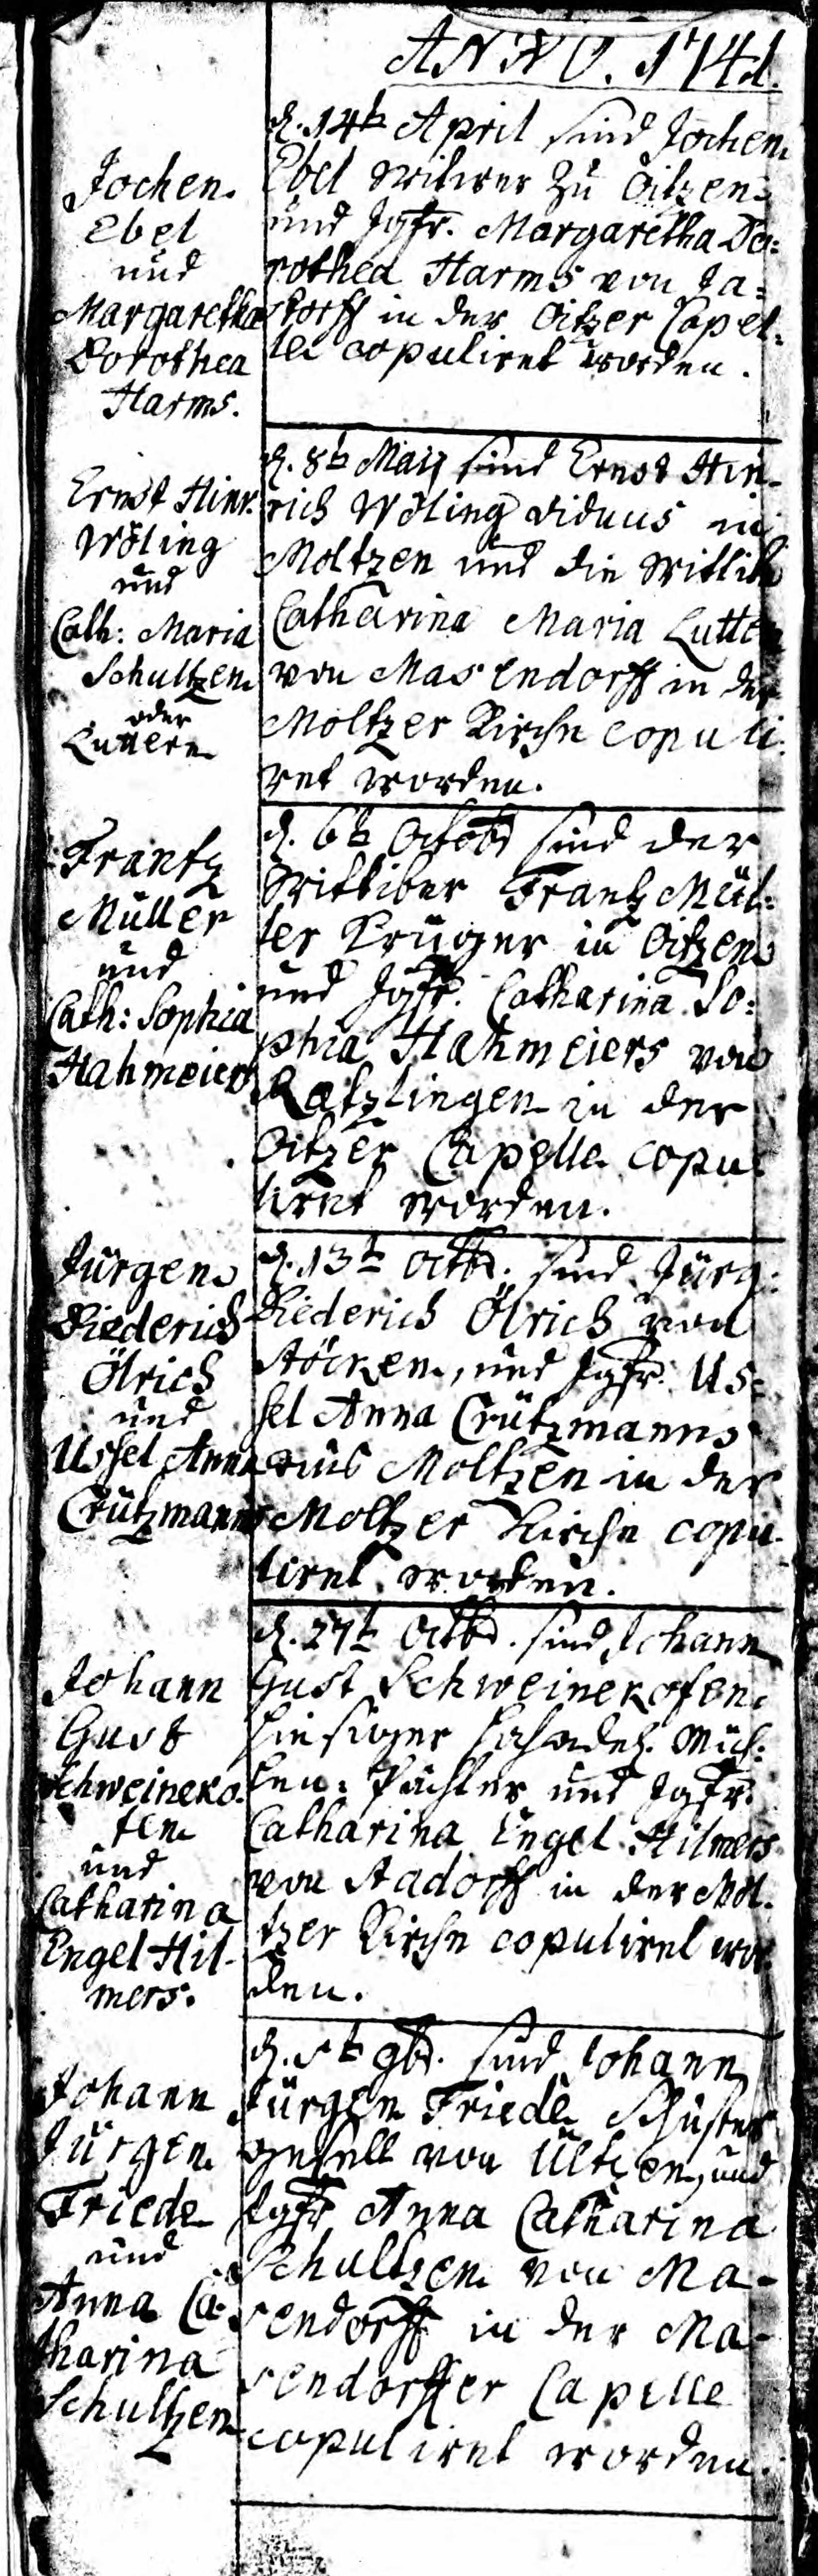 ANNO. 1741.
Jochen
Ebel
und
Margaretha
Dorothea
Harms.
d. 14t April sind Jochen
Ebel Witwer zu Oitzen
und Jgfr. Margaretha Do=
rothea Harms von Ja=
storff in der Oitzer Capel=
le copuliret worden.
Ernst Hinr.
Wöling
und
Cath: Maria
Schultzen
oder
Luttern
d. 8t Maij sind Ernst Hin-
rich Wöling viduus in
Moltzen und die Wittib
Catharina Maria Lutter
von Masendorff in der
Moltzer Kirche copuli-
ret worden.
Frantz
Müller
und
Cath: Sophia
Hahmeiers
d. 6t Octobr sind der
Wittiber Frantz Mül=
ler Krüger in Oitzen
und Jgfr. Catharina So=
phia Hahmeiers von
Rätzlingen in der
Oitzer Capelle copu-
liret worden.
Jürgen
Diederich
Ölrich
und
Ussel Anna
Crützmanns
d. 13t Octbr. sind Jürg:
Diederich Ölrich von
Stöcken, und Jgfr. Us=
sel Anna Crützmanns
aus Moltzen in der
Moltzer Kirche copu-
liret worden.
Johann
Gust
Schweineko-
fen
und
Catharina
Engel Hil-
mers.
d. 27t Octbr. sind Johann
Gust Schweinekofen
hiesiger Müh=
len Pächter und Jgfr.
Catharina Engel Hilmers
von Stadorff in der Mol-
tzer Kirche copuliret wor-
den.
Johann
Jürgen
Friede
und
Anna Ca-
tharina
Schultzen
d. 5t 9br. sind Johann
Jürgen Friede Schuster
gesell von Ültzen, und
Jgfr Anna Catharina
Schultzen von Ma-
sendorff in der Ma-
sendorffer Capelle
copuliret worden.